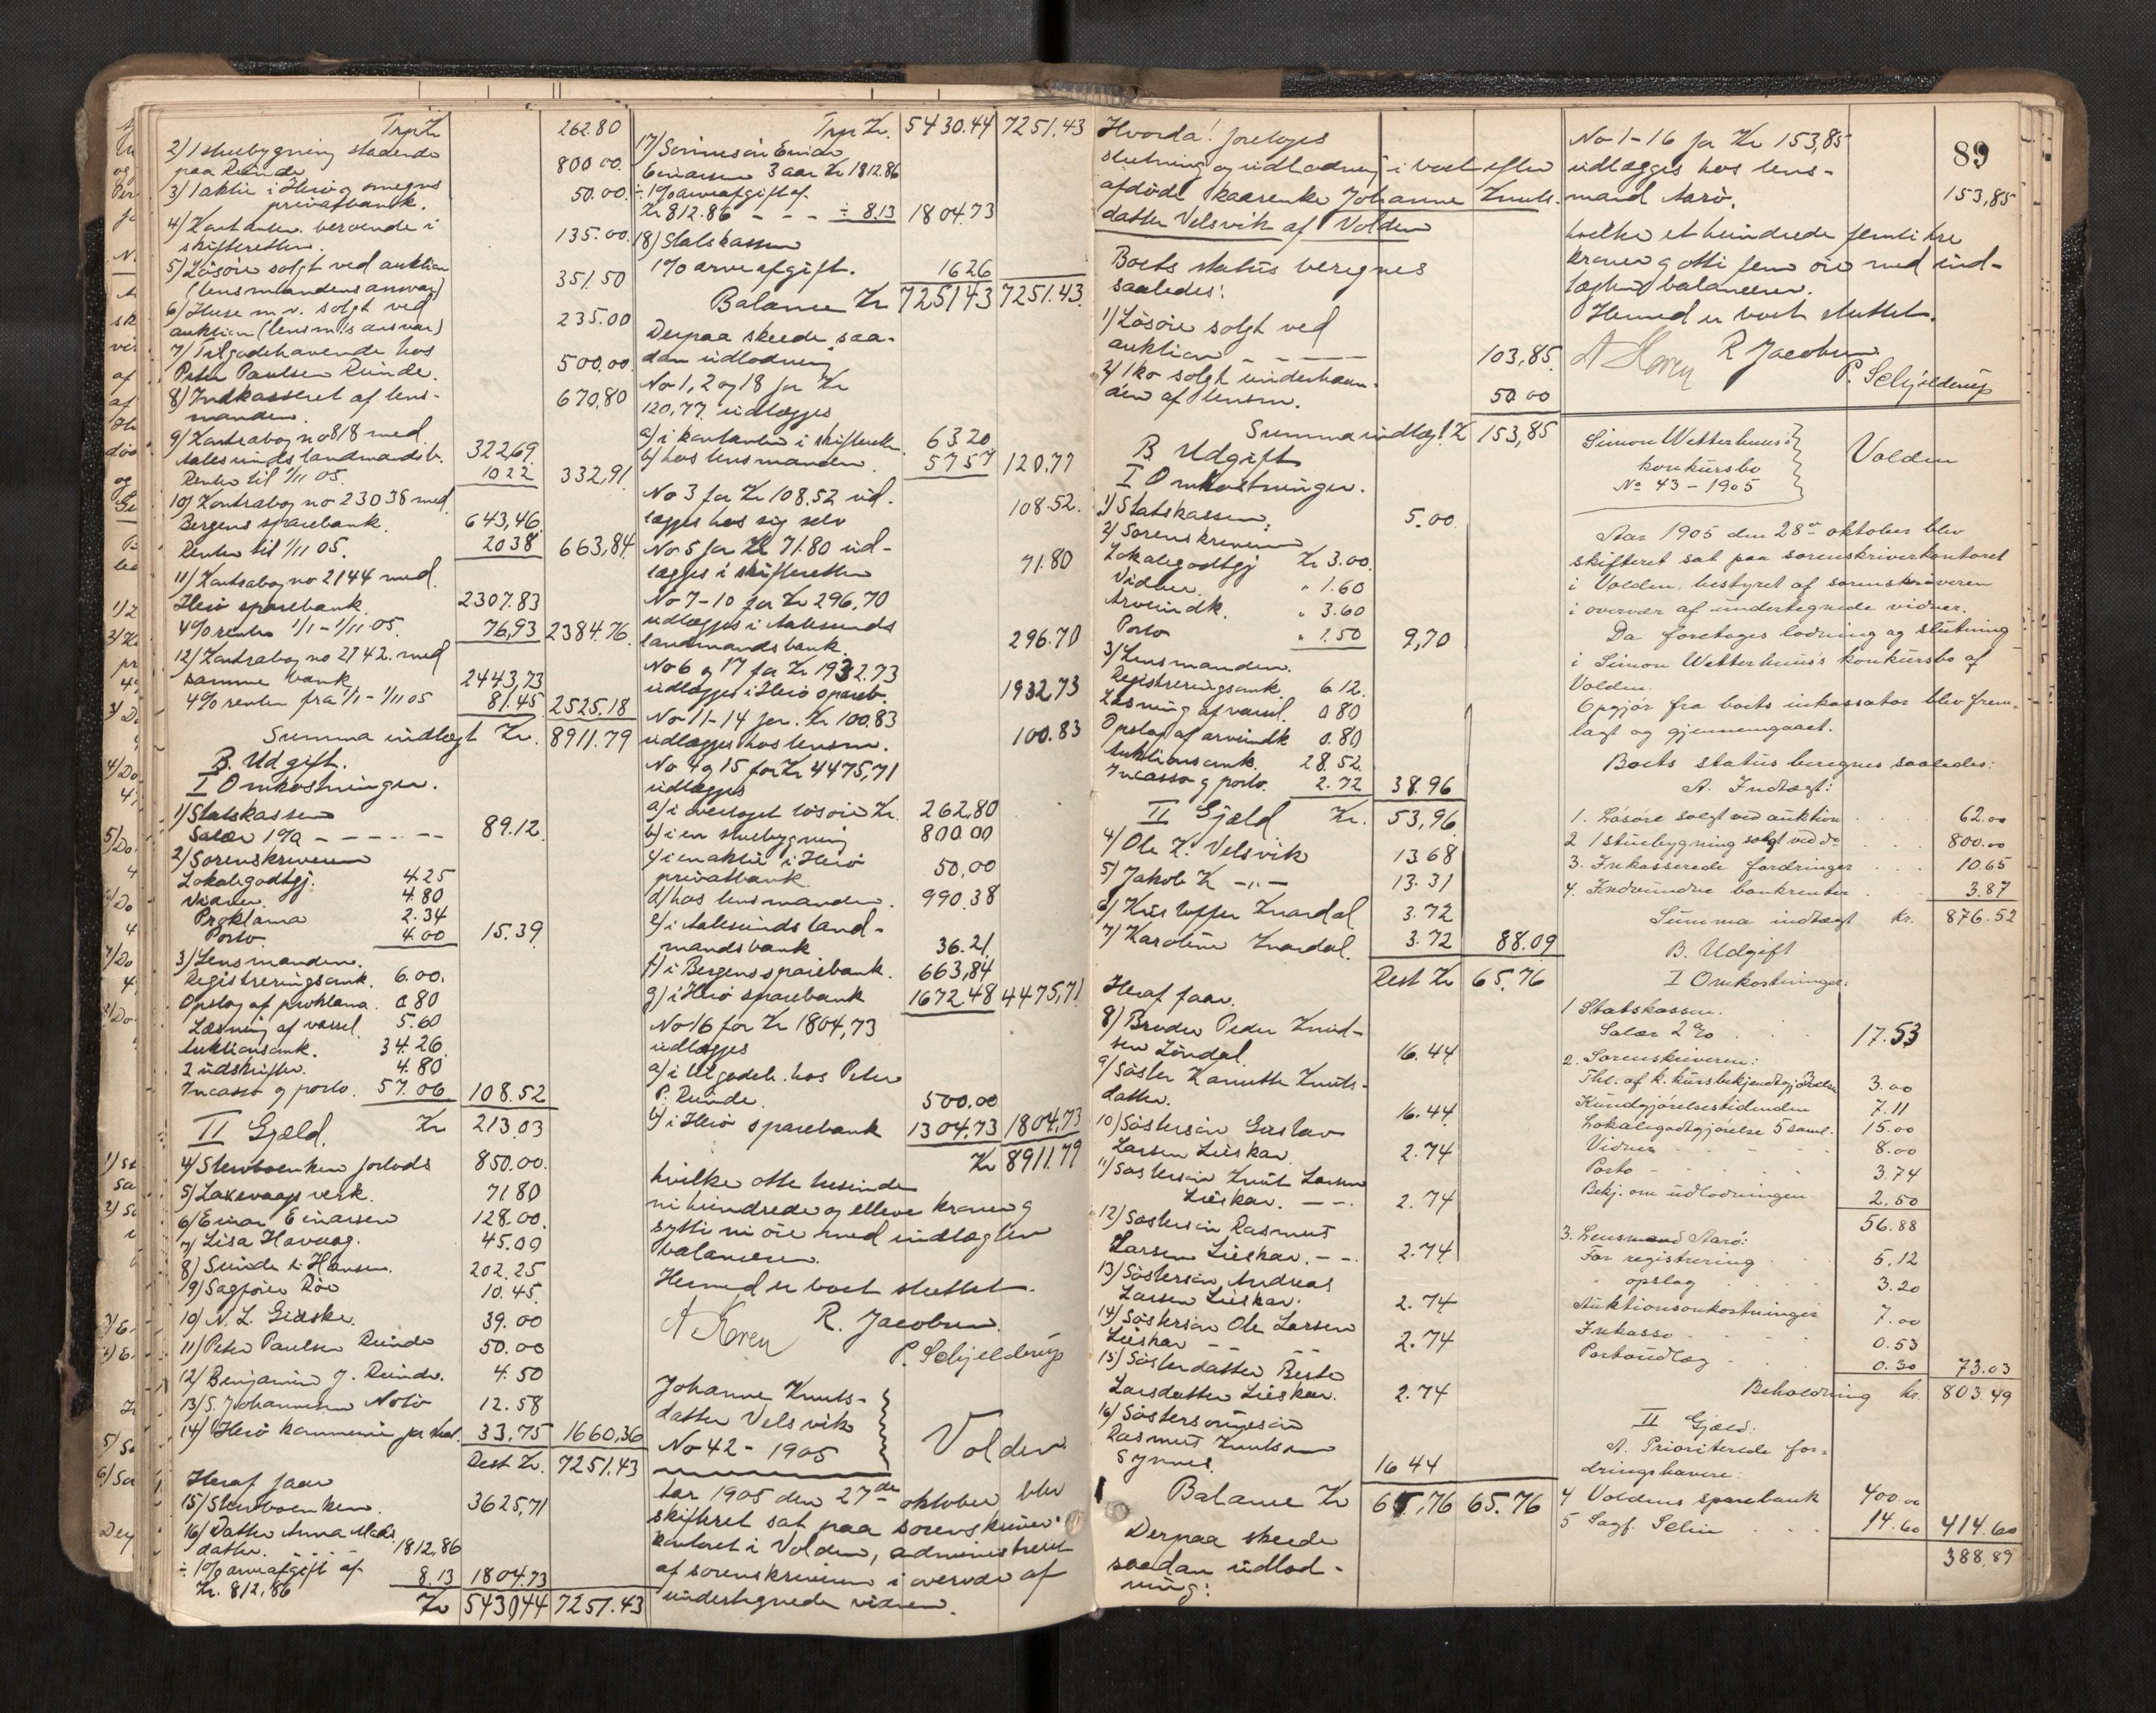 Trp Kr 262.80
2) 1 stuebygning stadende
paa Runde 800.00
3) 1 aktie i Herø og omegns
privatbank. 50.00
4) Kontanter beroende i
skifteretten. 135.00
5) Løsøre solgt ved auktion
(lensmandens ansvar) 351.50
6) Huse m.v. solgt ved
auktion (lensm.s ansvar) 235.00
7) Tilgodehavende hos
Peter Paulsen Runde. 500.00
8) Indkasseret af lens-
manden 670,80
9) Kontrabog no 818 med
Aalesunds landmandsb. 322,69.
Renter til 1/11 05. 10 22 332,91
10) Kontrabog no 23038 med
Bergens sparebank. 643,46
Renter til 1/11 05. 20 38 663,84
11) Kontrabog no 2144 med
Herø sparebank. 2307.83
4% renter 1/1 - 1/11 05. 76,93 2384.76
12) Kontrabog no 2142 med
samme bank 2443,73
4% renter fra 1/1 - 1/11 05 81.45 2525.18
Summa indtægt Kr. 8911.79
B. Udgift.
I Omkostninger.
1) Statskassen
Salær 1% - - - - - 89.12
2) Sorenskriveren
Lokalegodtgj. 4.25
Vidner. 4.80
Proklama 2.34
Porto. 4.00 15.39
3) Lensmanden.
Registreringsomk. 6.00.
Opslag af proklama. 0 80
Læsning af varsel. 5.60
Auktionsomk. 34.26
2 udskrifter. 4.80
Incasso og porto. 57.06 108.52
Kr 213.03
II Gjæld.
4) Stervboenken forlods 850.00.
5) Laxevaags verk. 71 80
6) Einar Einarsen 128.00
7) Lisa Havaag. 45.00
8) Sunde & Hansen. 202.25
9) Sagfører Röe 10.45.
10) N. L. Gidske. 39.00
11) Peter Paulsen Runde 50.00
12) Benjamin J. Runde. 4.50
13) S. Johannesen Notø 12.58
14) Herø kommune for skat. 33,75 1660,36
Rest Kr. 7251.43
Heraf faar
15) Stervboenken. 3625,71
16) Datter Anna Mads-
datter. 1812,86
÷ 1% arveafgift af
Kr. 812,86 8.13 1804.73
Kr 5430 44 7251.43
Trp Kr. 5430.44 7251.43
17) Sønnesøn Einar
Einarsen 3 aar Kr 1812.86
÷ 1% arveafgift af
Kr 812.86 - - - ÷ 8.13 1804.73
18) Statskassen
1% arveafgift. 16 26
Balance Kr 7251 43 7251.43.
Derpaa skeede saa-
dan udlodning
No 1, 2 og 18 for Kr
120,77 udlægges
a) i kontanter i skifterett. 63 20
b) hos lensmanden. 57 57 120.77
No 3 for Kr 108.52 ud-
lægges hos sig selv 108.52.
No 5 for Kr 71.80 ud-
lægges i skifteretten 71.80
No 7-10 for Kr 296,70
udlægges i Aalesunds
landmandsbank. 296.70
No 6 og 17 for Kr 1932.73
udlægges i Herø spareb. 1932,73
No 11-14 for Kr 100.83
udlægges hos lensm. 100.83
No 4 og 15 for Kr 4475,71
udlægges
a) i overtaget løsøre Kr. 262,80
b) i en stuebygning 800 00
c) i en aktie i Herø
privatbank. 50,00
d) hos lensmanden. 990.38
e) i Aalesunds land-
mandsbank 36.21
f) i Bergens sparebank. 663,84
g) i Herø sparebank 1672.48 4475,71
No 16 for Kr 1804,73
udlægges
a) i tilgodeh. hos Peter
P. Runde. 500,00
b) i Herø sparebank 1304.73 1804,73
Kr 8911.79
hvilke otte tusinde
ni hundrede og elleve kroner og
sytti ni øre med indtægten
balancerer.
Hermed er boet sluttet.
A Koren R. Jacobsen.
P. Schjelderup
Johanne Knuts-
datter Velsvik
No 42 - 1905
Volden
Aar 1905 den 27de oktober blev
skifteret sat paa sorenskriver-
kontoret i Volden, administreret
af sorenskriveren i overvær af
undertegnede vidner.
Hvorda! foretoges
slutning og udlodning i boet efter
afdøde kaarenke Johanne Knuts-
datter Velsvik af Volden
Boets status beregnes
saaledes:
1) Løsøre solgt ved
auktion - - - - 103,85.
2) 1 ko solgt underhaan-
den af lensm. 50 00
Summa indtægt Kr 153,85
B Udgift
I Omkostninger.
1) Statskassen. 5.00
2) Sorenskriveren
Lokalegodtgj Kr 3.00
Vidner. " 1.60
Arveindk. " 3.60
Porto " 1.50 9,70
3) Lensmanden.
Registreringsomk. 6.12.
Læsning af varsel. 0 80
Opslag af arveindk 0.80
Auktionsomk. 28.52
Incasso og porto. 2.72 38.96
Kr. 53,96
II Gjæld
4) Ole K. Velsvik 13 68
5) Jakob K -"- 13.31
6) Kristoffer Knardal 3.72
7) Karoline Knardal. 3.72 88.09
Rest Kr 65.76
Heraf faar.
8) Broder Peder Knud-
sen Löndal. 16.44
9) Søster Kanutte Knuts-
datter. 16.44
10) Søstersøn Gustav
Larsen Lieskar 2.74
11) Søstersøn Knut Larsen
Lieskar. - - 2.74
12) Søstersøn Rasmus
Larsen Lieskar. - - 2.74
13) Søstersøn Andreas
Larsen Lieskar. 2.74
14) Søstersøn Ole Larsen
Lieskar - - 2.74
15) Søsterdatter Berte
Larsdatter Lieskar. 2.74
16) Søstersønnesøn
Rasmus Knutsen
Synnes. 16 44
Balance Kr 65,76 65.76
Derpaa skeede
saadan udlod-
ning:
89
No 1-16 for Kr 153,85
udlægges hos lens-
mand Aarø. 153,85
hvilke et hundrede femti tre
kroner og otti fem øre med ind-
tægten balancerer.
Hermed er boet sluttet.
A Koren R Jacobsen
P. Schjelderup
Simon Wetterhuus's
konkursbo
No 43 - 1905
Volden
Aar 1905 den 28de oktober blev
skifteret sat paa sorenskriverkontoret
i Volden, bestyret af sorenskriveren
i overvær af undertegnede vidner.
Da foretoges lodning og slutning
i Simon Wetterhuus's konkursbo af
Volden.
Opgjør fra boets inkassator blev frem-
lagt og gjennemgaaet.
Boets status beregnes saaledes:
A. Indtægt:
1. Løsøre solgt ved auktion 62.00
2 1 stuebygning solgt ved do 800.00
3. Inkasserede fordringer 10.65
4. Indvundne bankrenter 3.87
Summa indtægt Kr. 876.52
B. Udgift
I Omkostninger:
1 Statskassen.
Salær 2% 17.53
2. Sorenskriveren:
Thl. af k.kursbekjendtgjørelsen 3.00
Kundgjørelsestidenden 7.11
Lokalegodtgjørelse 5 saml. 15.00
Vidner 8.00
Porto 3.74
Bekj. om udlodningen 2.50
56.88
3. Lensmand Aarø:
For registrering 5.12
" opslag 3.20
Auktionsomkostninger 7.00
Inkasso 0.53
Portoudlæg 0.30 73.03
Beholdning kr. 803.49
II Gjæld:
A. Prioriterede for-
dringshavere:
4 Voldens sparebank 400.00
5 Sagf. Selin 14.60 414.60
388,89